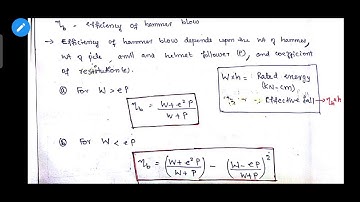 η_b - efficiency of hammer blow
→ Efficiency of hammer blow depends upon the wt of hammer,
wt of pile, anvil and helmet follower (P), and coefficient
of restitution(e).
W×h = Rated energy
(kN-cm)
Effective fall → η_h×h
(a) For W > eP
η_b = (W + e²P)/(W + P)
(b) For W < eP
η_b = ((W + e²P)/(W + P)) - ((W - eP)/(W + P))²